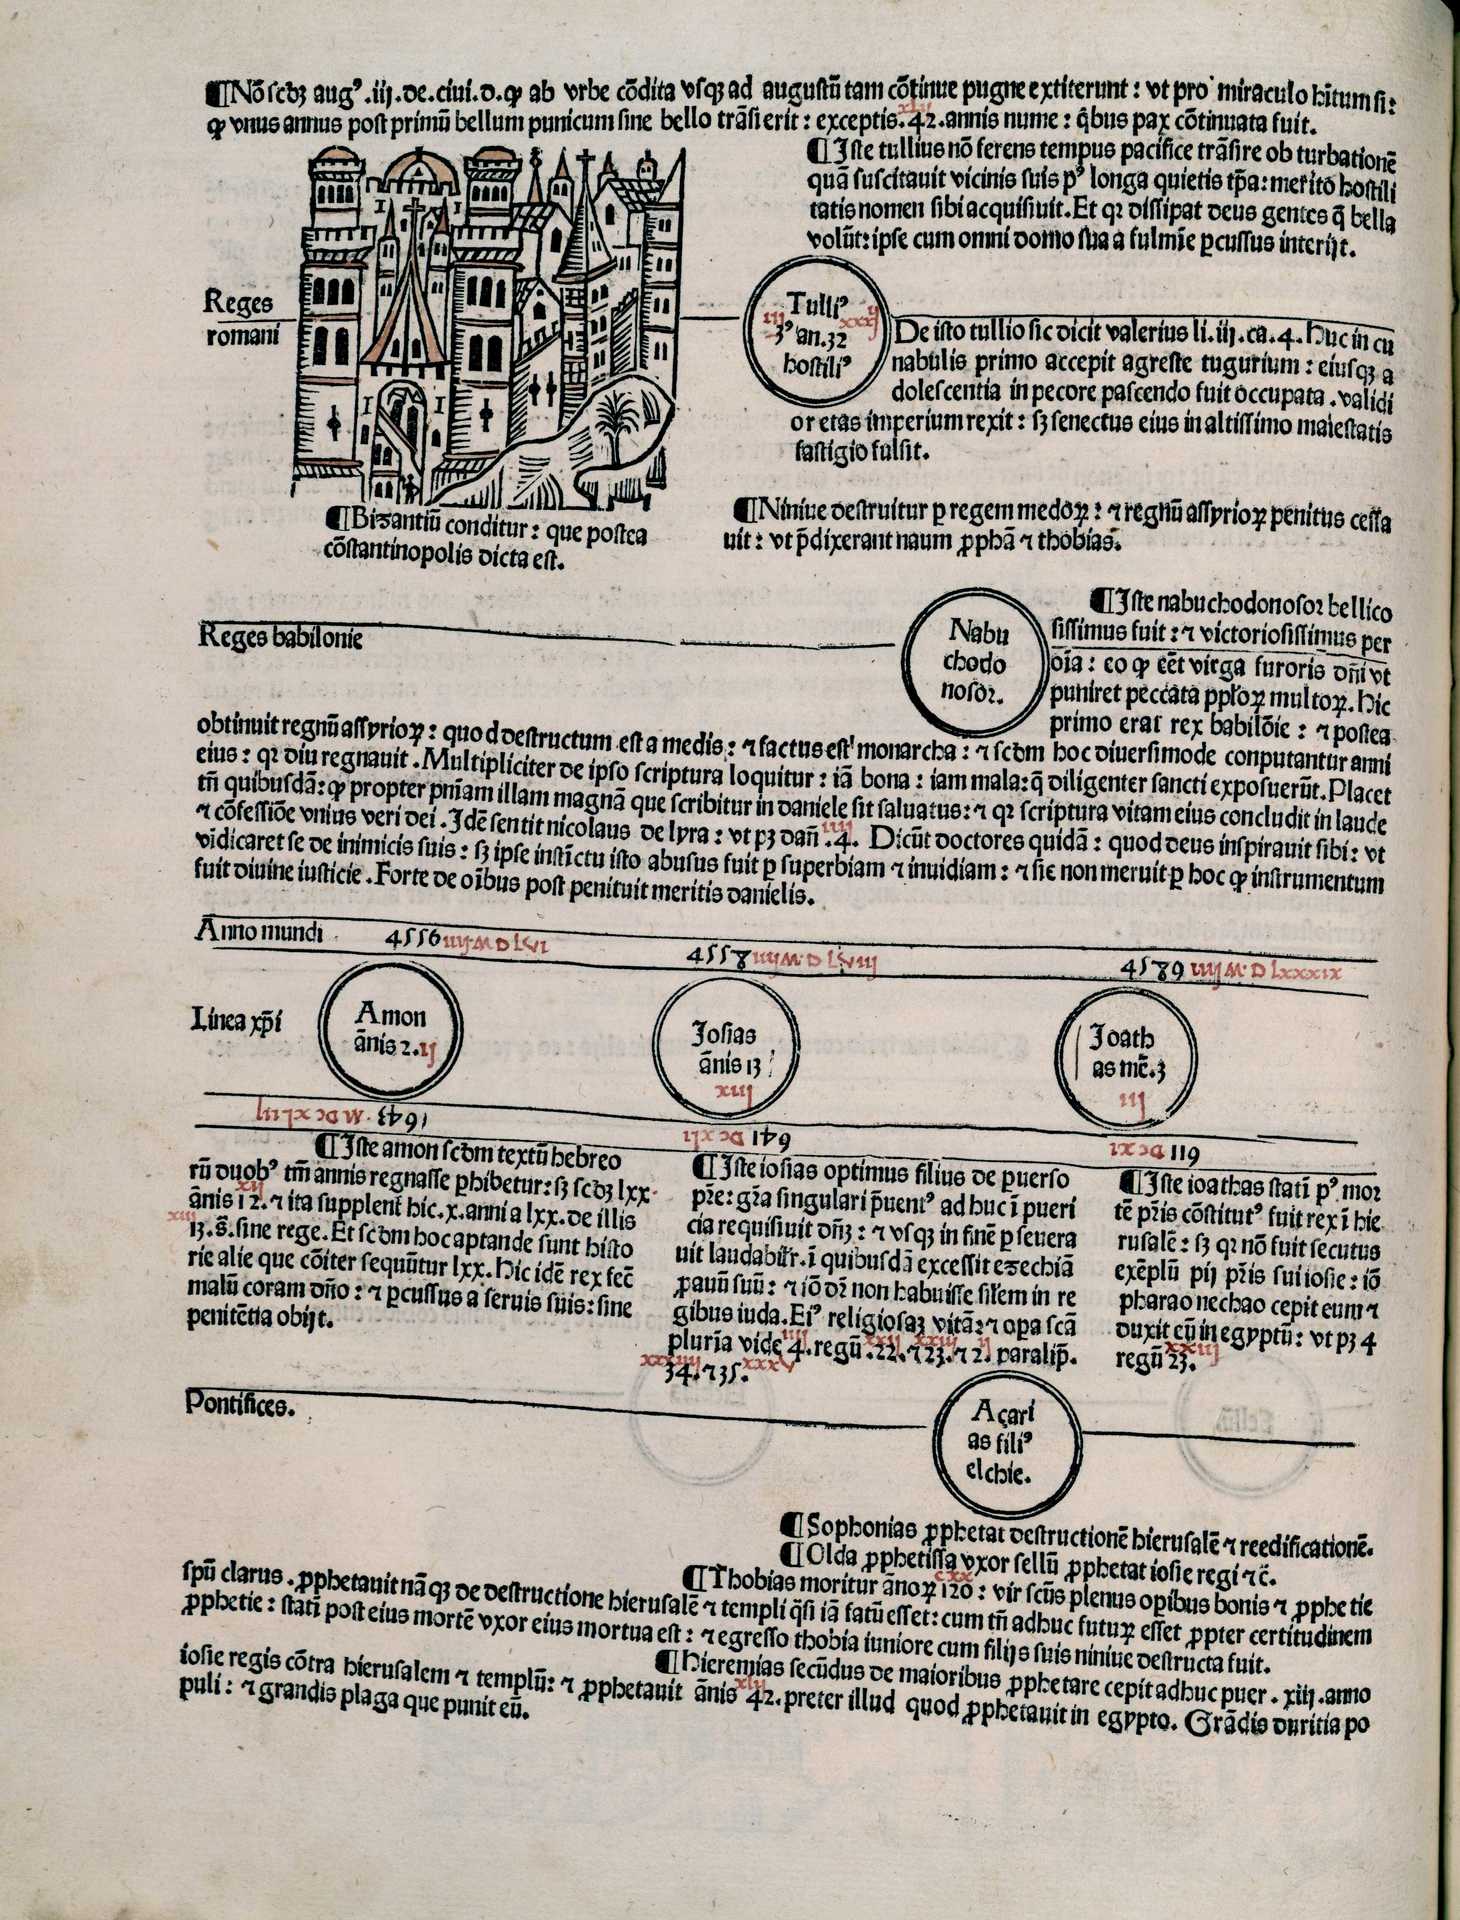 ¶Nō scd̄ꝫ augꝰ.iij.de.ciui.d.ꝙ ab vrbe cōdita vsqꝫ ad augustū tam cōtinue pugne extiterunt: vt pro miraculo hītum sit:
ꝙ vnus annus post primū bellum punicum sine bello trāsierit: exceptis.42.annis nume: q̄bus pax cōtinuata fuit.
xlij
¶Iste tullius nō ferens tempus pacifice trāsire ob turbationē
quā suscitauit vicinis suis pꝰ longa quietis tp̄a: merito hostili
tatis nomen sibi acquisiuit. Et qꝛ dissipat deus gentes q̄ bella
volūt: ipse cum omni domo sua a fulmīe ꝑcussus interijt.
Reges
romani
Tulliꝰ
3ꝰ an.32
hostiliꝰ
iij
xxxij
De isto tullio sic dicit valerius li.iij.ca.4. Huc in cu
nabulis primo accepit agreste tugurium: eiusqꝫ a
dolescentia in pecore pascendo fuit occupata. validi
or etas imperium rexit: sꝫ senectus eius in altissimo maiestatis
fastigio fulsit.
¶Bizantiū conditur: que postea
cōstantinopolis dicta est.
¶Niniue destruitur ꝑ regem medoꝝ: ⁊ regnū assyrioꝝ penitus cessa
uit: vt p̄dixerant naum ꝓphā ⁊ thobias.
Reges babilonie
Nabu
chodo
nosor.
¶Iste nabuchodonosor bellico
sissimus fuit: ⁊ victoriosissimus per
oīa: eo ꝙ eēt virga furoris dn̄i vt
puniret peccata pp̄loꝝ multoꝝ. Hic
primo erat rex babilōie: ⁊ postea
obtinuit regnū assyrioꝝ: quod destructum est a medis: ⁊ factus est monarcha: ⁊ scd̄m hoc diuersimode conputantur anni
eius: qꝛ diu regnauit. Multipliciter de ipso scriptura loquitur: iā bona: iam mala: q̄ diligenter sancti exposuerūt. Placet
tn̄ quibusdā: ꝙ propter pn̄iam illam magnā que scribitur in daniele sit saluatus: ⁊ qꝛ scriptura vitam eius concludit in laude
⁊ cōfessiōe vnius veri dei. Idē sentit nicolaus de lyra: vt pꝫ dan̄.4. Dicūt doctores quidā: quod deus inspirauit sibi: vt
iiij
vīdicaret se de inimicis suis: sꝫ ipse instīctu isto abusus fuit ꝑ superbiam ⁊ inuidiam: ⁊ sic non meruit ꝑ hoc ꝙ instrumentum
fuit diuine iusticie. Forte de oībus post penituit meritis danielis.
Anno mundi 4556 iiij.M D LVI 4558 iiij M. D LViij 4589 iiij M. D lxxxix
Linea xp̄i
Amon
ānis 2. ij
Iosias
ānis 13
xiij
Ioath
as mē.3
iij
1643 M DC xliij
641 DC xli
611 DC xi
¶Iste amon scd̄m textū hebreo
rū duobꝰ tm̄ annis regnasse ꝑhibetur: sꝫ scd̄ꝫ lxx.
ānis 12. ⁊ ita supplent̄ hic.x.anni a lxx. de illis
xij
13. s̄. sine rege. Et scd̄m hoc aptande sunt histo
xiij
rie alie que cōiter sequūtur lxx. Hic idē rex fec̄
malū coram dn̄o: ⁊ ꝑcussus a seruis suis: sine
penitētia obijt.
¶Iste iosias optimus filius de puerso
pr̄e: gr̄a singulari p̄uentꝰ adhuc ī pueri
cia requisiuit dn̄ꝫ: ⁊ vsqꝫ in finē ꝑseuera
uit laudabilr̄. ī quibusdā excessit ezechiā
ꝓauū suū: ⁊ iō dr̄ non habuisse sil̄em in re
gibus iuda. Eiꝰ religiosaꝫ vitā: ⁊ oꝑa scā
plurīa vide 4. regū.22. ⁊ 23. ⁊ 2. paralip̄.
iiij xxij xxiij ij
34. ⁊ 35.
xxxiiij xxxv
¶Iste ioathas statī pꝰ mor
tē pr̄is cōstitutꝰ fuit rex ī hie
rusalē: sꝫ qꝛ nō fuit secutus
exēplū pij pr̄is sui iosie: iō
pharao nechao cepit eum ⁊
duxit eū in egyptū: vt pꝫ 4
regū 23.
xxiij
Pontifices.
Açari
as filiꝰ
elchie.
¶Sophonias ꝓphetat destructionē hierusalē ⁊ reedificationē.
¶Olda ꝓphetissa vxor sellū ꝓphetat iosie regi ⁊c̄.
¶Thobias moritur ānoꝝ 120: vir scūs plenus oꝑibus bonis ⁊ ꝓphetie
cxx
spū clarus. ꝓphetauit nāqꝫ de destructione hierusalē ⁊ templi q̄si iā factū esset: cum tn̄ adhuc futuꝝ esset ꝓpter certitudinem
ꝓphetie: statī post eius mortē vxor eius mortua est: ⁊ egresso thobia iuniore cum filijs suis niniue destructa fuit.
¶Hieremias secūdus de maioribus ꝓphetare cepit adhuc puer. xiij.anno
iosie regis cōtra hierusalem ⁊ templū: ⁊ ꝓphetauit ānis 42. preter illud quod ꝓphetauit in egypto. Grādis duritia po
xlij
puli: ⁊ grandis plaga que punit eū.